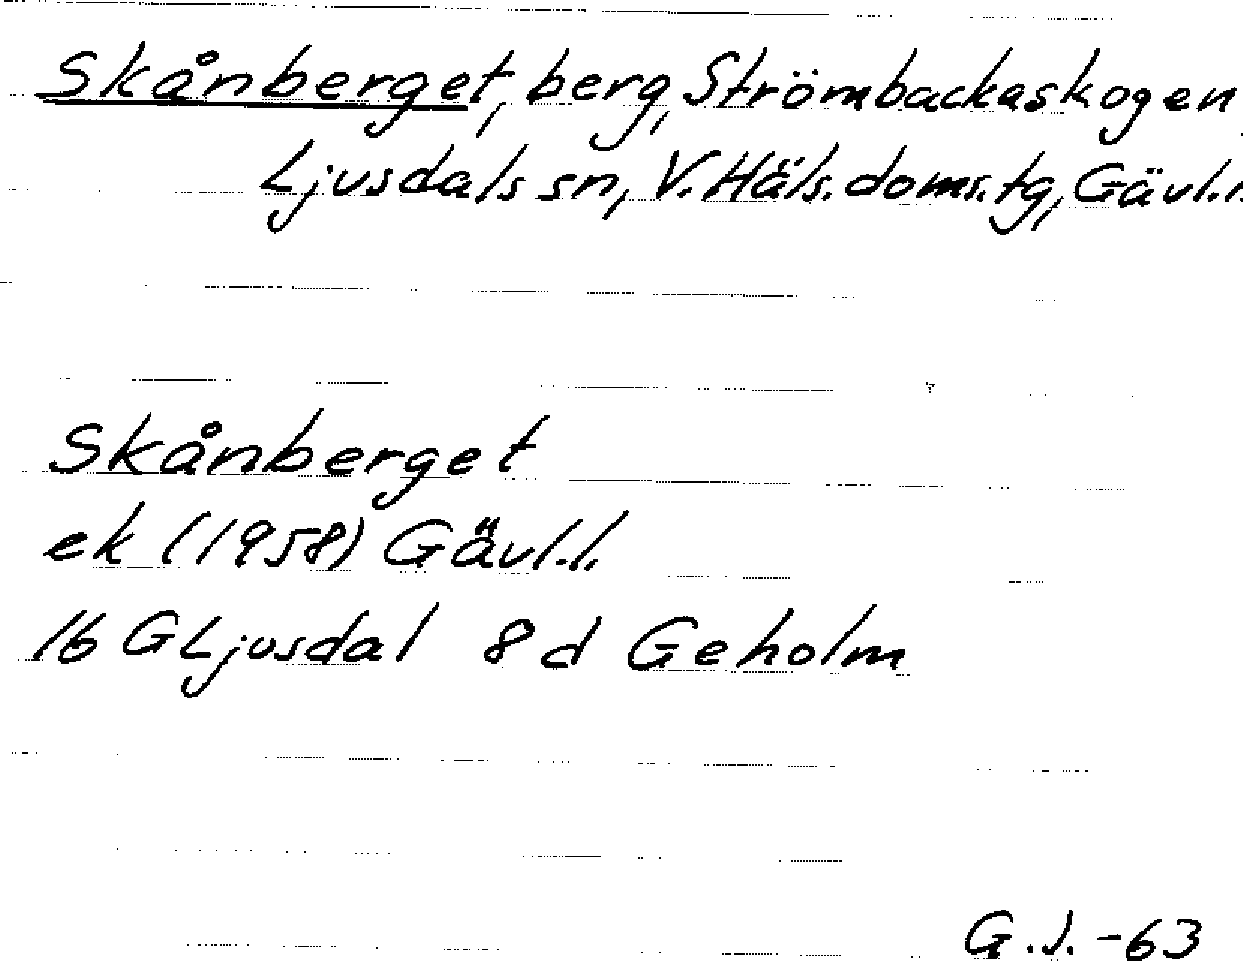 Skånberget, berg, Strömbackaskogen
Ljusdals sn, V. Häls. doms. tg, Gävl. l.
Skånberget
ek (1958) Gävl. l.
16 G Ljusdal 8 d Geholm
G. J. -63